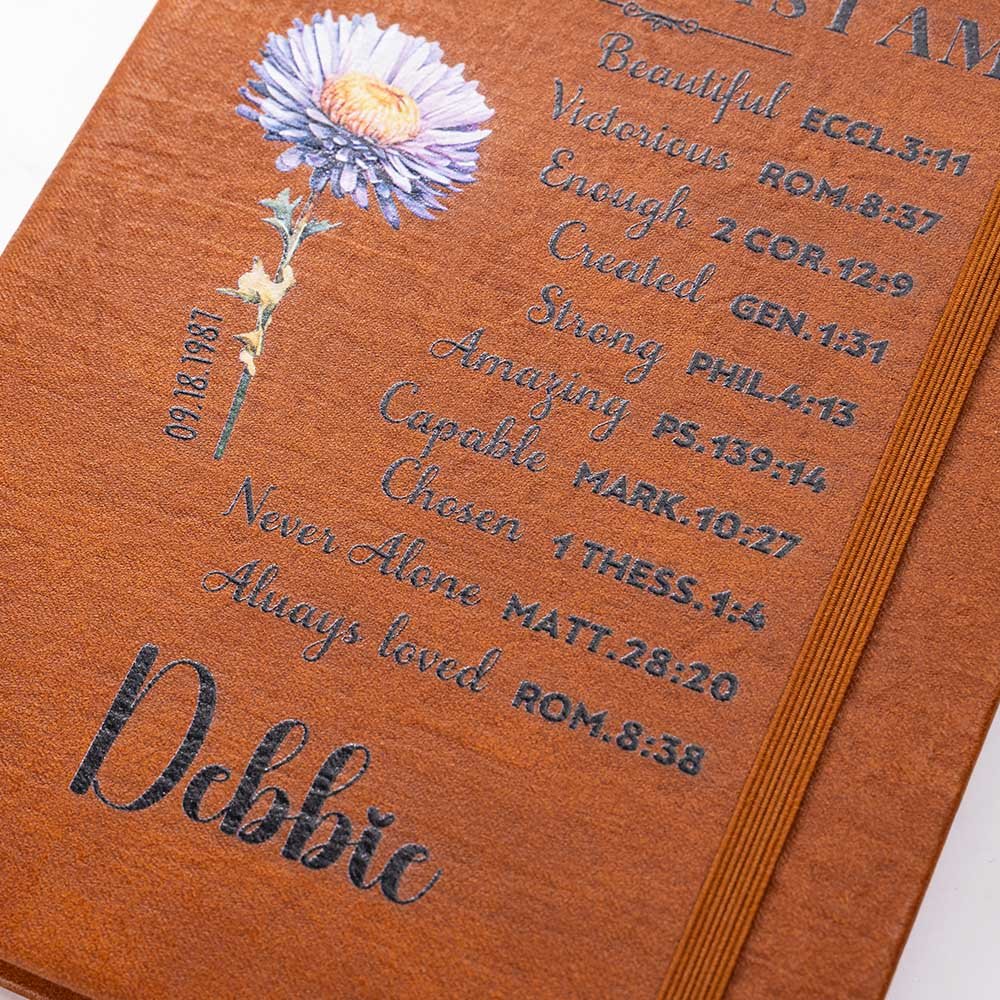 I AM
Beautiful ECCL.3:11
Victorious ROM.8:37
Enough 2 COR.12:9
Created GEN.1:31
Strong PHIL.4:13
Amazing PS.139:14
Capable MARK.10:27
Chosen 1 THESS.1:4
Never Alone MATT.28:20
Always loved ROM.8:38
09.18.1987
Debbie